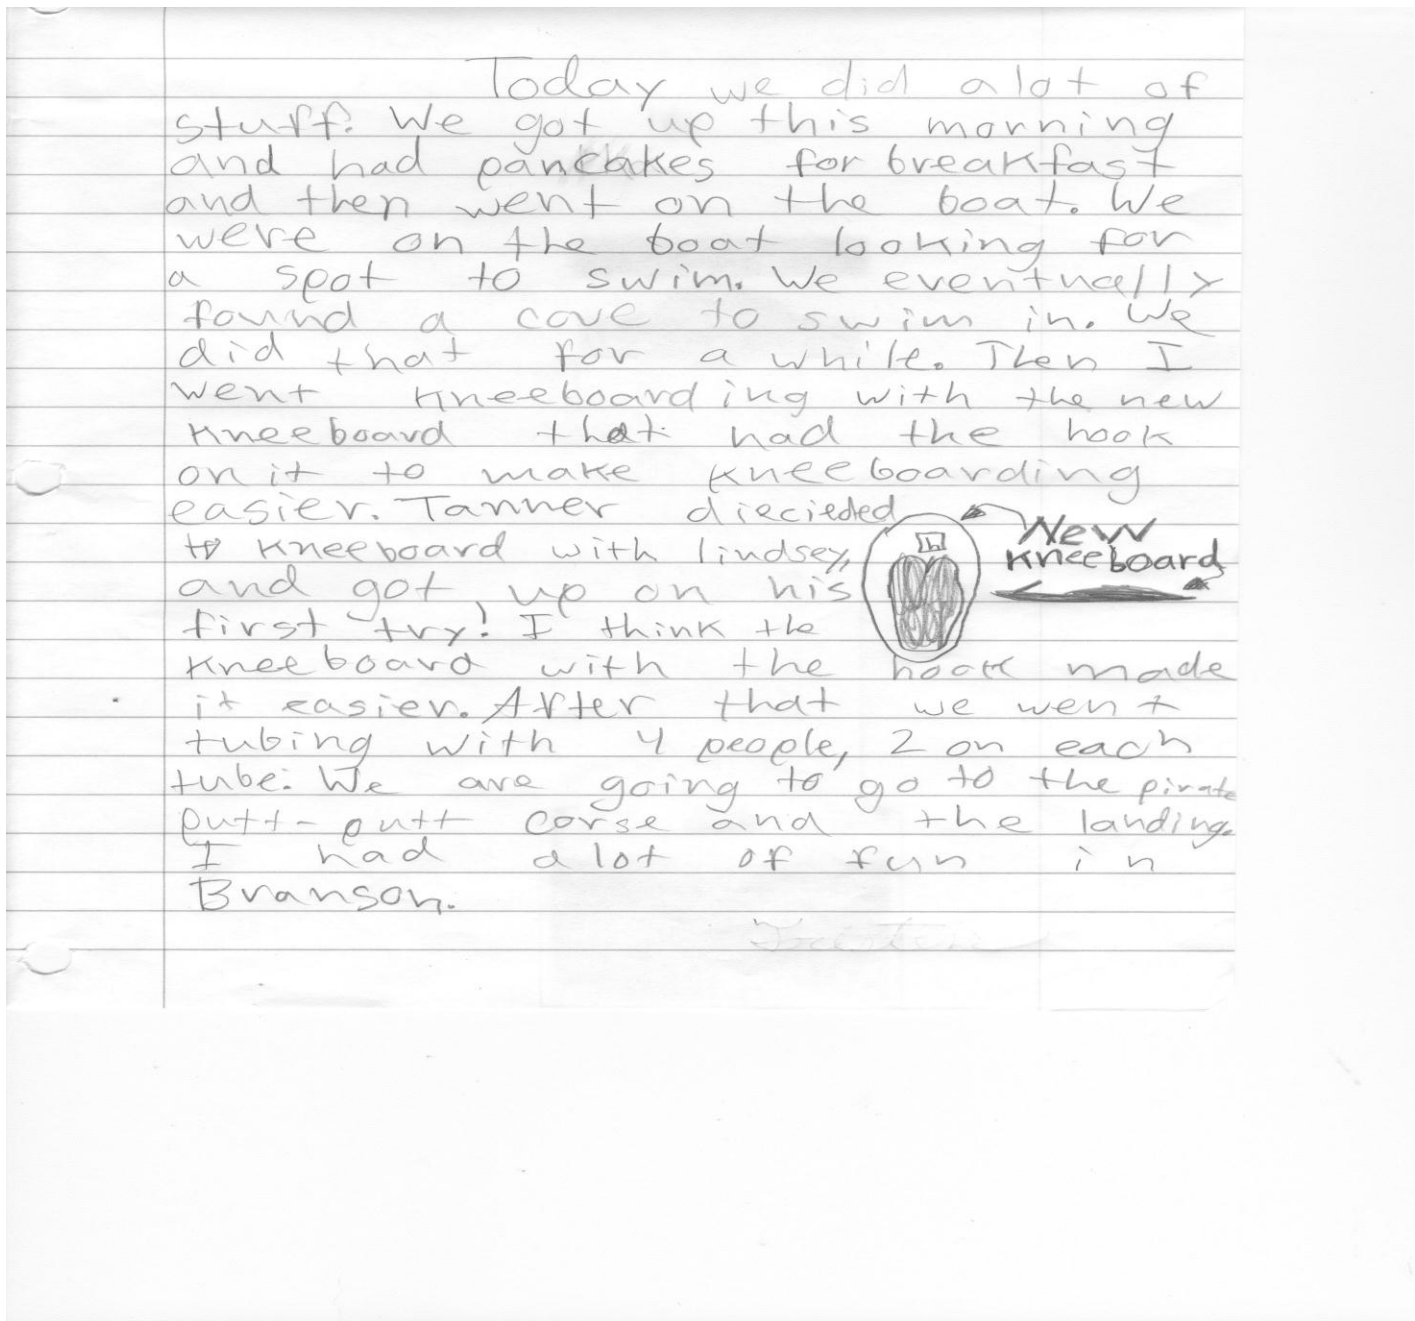 Today we did alot of
stuff. We got up this morning
and had pancakes for breakfast
and then went on the boat. We
were on the boat looking for
a spot to swim. We eventually
found a cove to swim in. We
did that for a while. Then I
went kneeboarding with the new
kneeboard that had the hook
on it to make kneeboarding
easier. Tanner diecieded
to kneeboard with lindsey,
and got up on his
first try! I think the
kneeboard with the hook made
it easier. After that we went
tubing with 4 people, 2 on each
tube. We are going to go to the pirate
putt-putt corse and the landing.
I had alot of fun in
Branson.
New
kneeboard